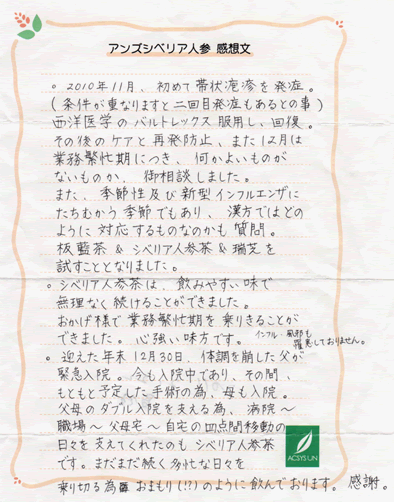 アンズシベリア人参 感想文
○ 2010年11月、初めて帯状疱疹を発症。
(条件が重なりますと二回目発症もあるとの事)
西洋医学のバルトレックス服用し、回復。
その後のケアと再発防止、また12月は
業務繁忙期につき、何かよいものが
ないものか、御相談しました。
また、季節性及び新型インフルエンザに
たちむかう季節でもあり、漢方ではどの
ように対応するものなのかも質問。
板藍茶&シベリア人参茶&瑞芝を
試すこととなりました。
○シベリア人参茶は、飲みやすい味で
無理なく続けることができました。
おかげ様で業務繁忙期を乗りきることが
できました。心強い味方です。インフル・風邪も
罹患しておりません。
○ 迎えた年末12月30日、体調を崩した父が
緊急入院。今も入院中であり、その間、
もともと予定した手術の為、母も入院。
父母のダブル入院を支える為、病院〜
職場〜父母宅〜自宅の四点間移動の
日々を支えてくれたのもシベリア人参茶
です。まだまだ続く多忙な日々を
ACSYS UN
乗り切る為、おまもり(!?)のように飲んでおります。感謝。